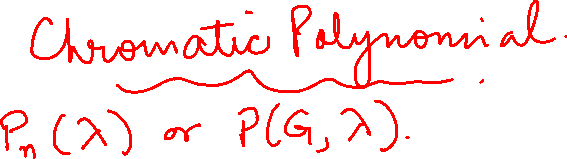 Chromatic Polynomial.
Pₙ(λ) or P(G, λ).